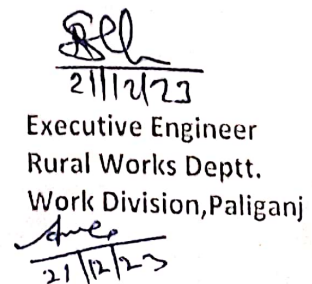 21/12/23
Executive Engineer
Rural Works Deptt.
Work Division,Paliganj
21/12/23